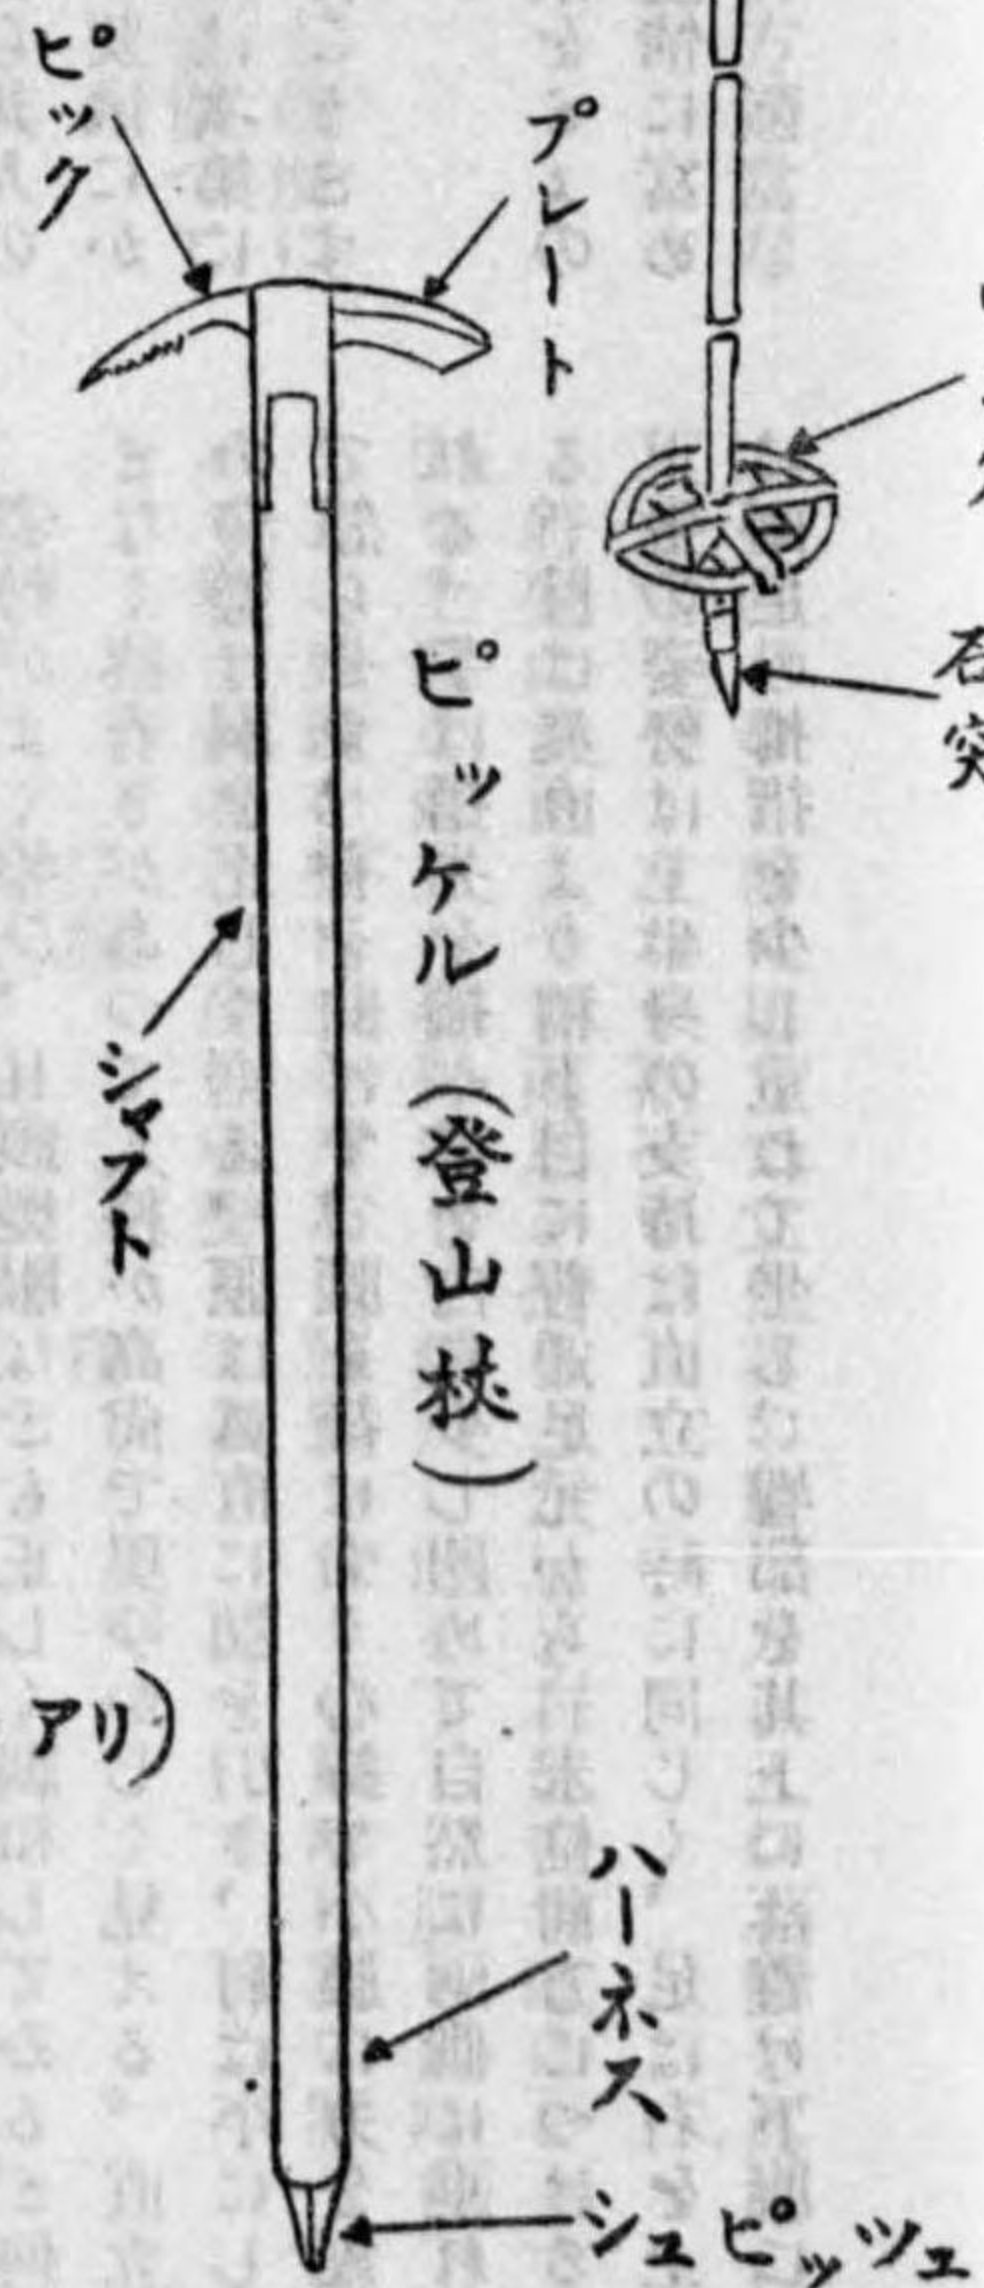 石突
プレート
ピック
ピッケル（登山杖）
シャフト
アリ）
ハーネス
シュピッツェ